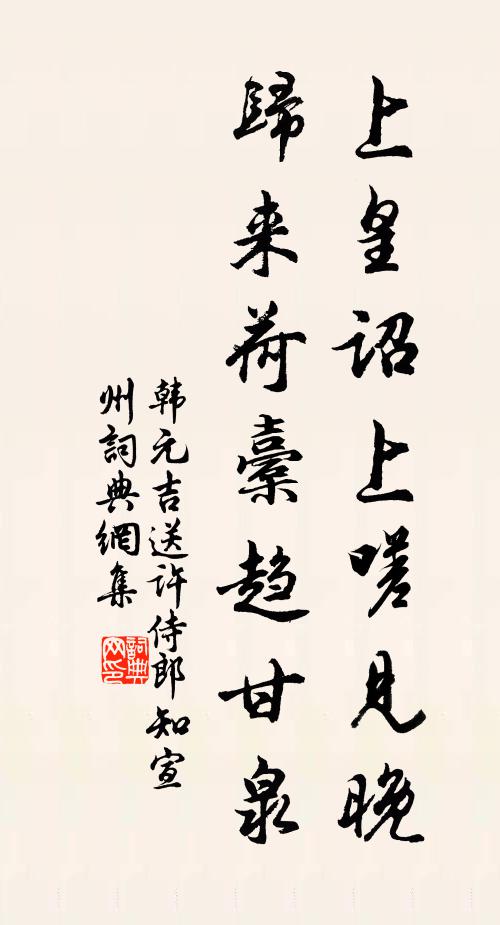 上皇詔上嗟見晚
歸来荷橐趋甘泉
韩元吉送许侍郎知宣
州詞典網集
詞典网印